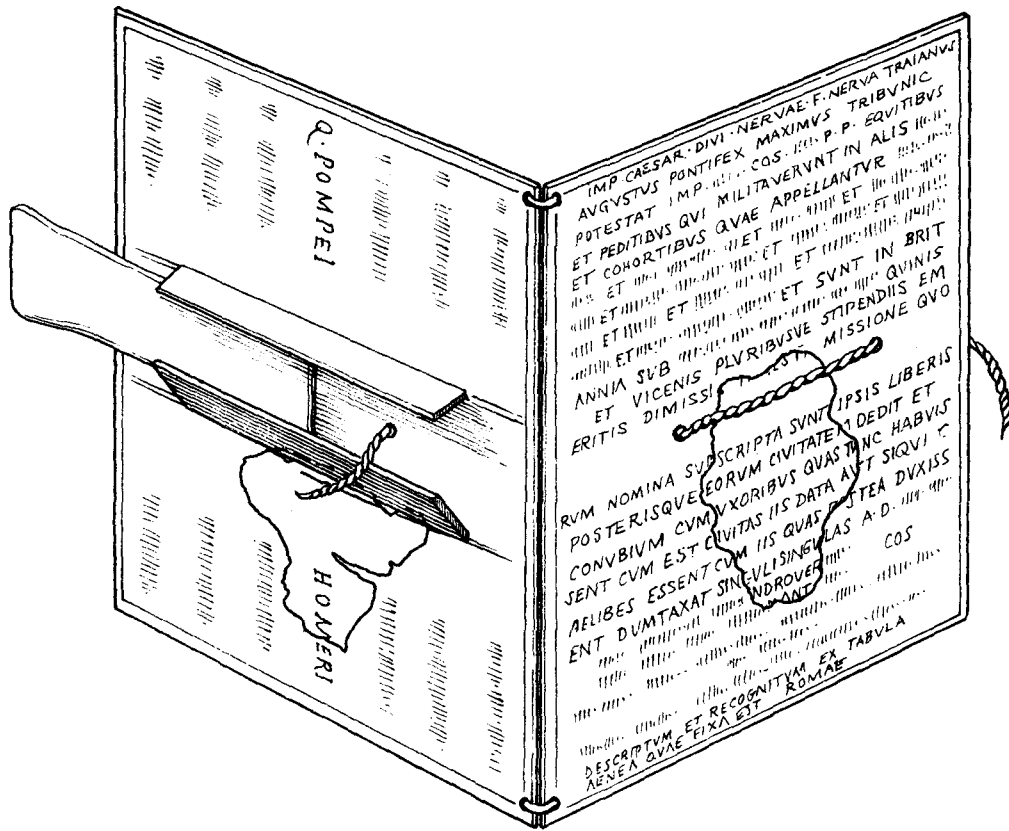 Q. POMPEI
HOMERI
IMP. CAESAR. DIVI. NERVAE. F. NERVA TRAIANVS
AVGVSTVS PONTIFEX MAXIMVS TRIBVNIC
POTESTAT IMP. COS. P. P. EQVITIBVS
ET PEDITIBVS QVI MILITAVERVNT IN ALIS
ET COHORTIBVS QVAE APPELLANTVR
ET ET ET
ET ET ET ET
ET ET ET SVNT IN BRIT
ANNIA SVB QVINIS
ET VICENIS PLVRIBVSVE STIPENDIIS EM
ERITIS DIMISSI MISSIONE QVO
RVM NOMINA SVBSCRIPTA SVNT IPSIS LIBERIS
POSTERISQVE EORVM CIVITATEM DEDIT ET
CONVBIVM CVM VXORIBVS QVAS TVNC HABVIS
SENT CVM EST CIVITAS IIS DATA AVT SIQVI C
AELIBES ESSENT CVM IIS QVAS POSTEA DVXISS
ENT DVMTAXAT SINGVLI SINGVLAS A. D.
NDROVER COS
ANT
DESCRIPTVM ET RECOGNITVM EX TABVLA
AENEA QVAE FIXA EST ROMAE